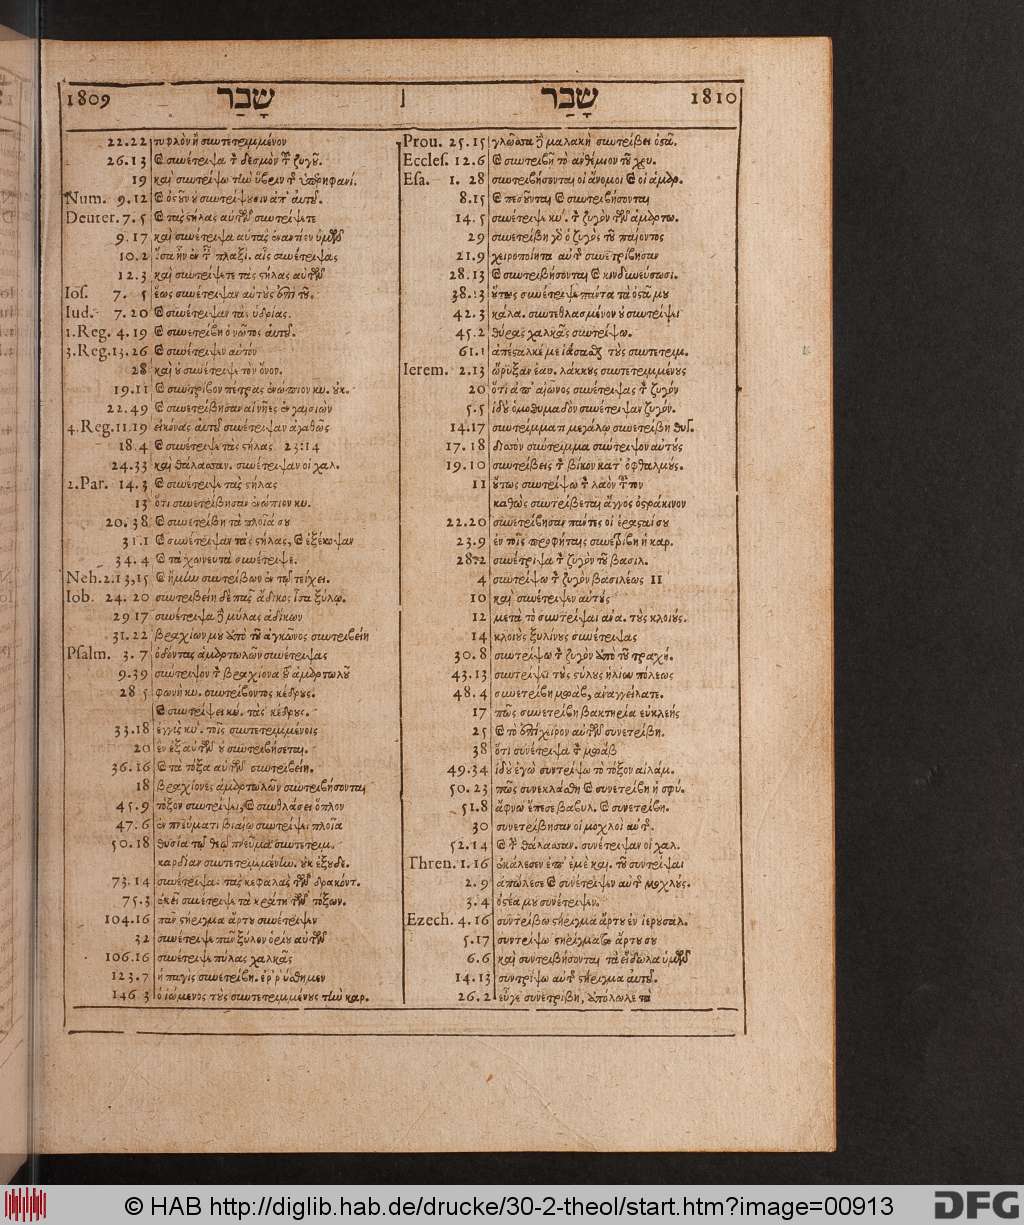 1809 שָׁבַר
22.22 τυφλὸν ἢ συντετριμμένον
26.13 καὶ συνέτριψα τ̀ δεσμὸν τȣ̃ ζυγοῦ.
19 καὶ συντρίψω τὴν ὕβριν τ̀ ὑπερηφανί.
Num. 9.12 καὶ ὀστοῦν οὐ συντρίψουσιν ἀπ' αὐτοῦ.
Deuter. 7.5 καὶ τὰς στήλας αὐτῶν συντρίψετε
9.17 καὶ συνέτριψα αὐτὰς ἐναντίον ὑμῶν
10.2 ταῖς πλαξὶ. αἷς συνέτριψας
12.3 καὶ συντρίψετε τὰς στήλας αὐτῶν
Ios. 7.5 ἕως συνέτριψαν αὐτοὺς ἐπὶ τοῦ.
Iud. 7.20 καὶ συνέτριψαν τὰς ὑδρίας.
1.Reg. 4.19 καὶ συνετρίβη ὁ νῶτος αὐτοῦ.
3.Reg. 13.26 καὶ συνέτριψεν αὐτὸν
28 καὶ οὐ συνέτριψε τὸν ὄνον.
19.11 καὶ συντρίβον πέτρας ἐνώπιον κυ. οὐκ.
22.49 καὶ συνετρίβησαν αἱ νῆες ἐν γασιὼν
4.Reg. 11.19 εἰκόνας αὐτοῦ συνέτριψαν ἀγαθῶς
18.4 καὶ συνέτριψε τὰς στήλας 23:14
24.33 καὶ θάλασσαν. συνέτριψαν οἱ χαλ.
2.Par. 14.3 καὶ συνέτριψε τὰς στήλας
13 ὅτι συνετρίβησαν ἐνώπιον κυ.
20.38 καὶ συνετρίβη τὰ πλοῖά σου
31.1 καὶ συνέτριψαν τὰς στήλας, καὶ ἐξέκοψαν
34.4 καὶ τὰ χωνευτὰ συνέτριψε.
Neh. 2.13,15 καὶ ἤμην συντρίβων ἐν τῷ τείχει.
Iob. 24.20 συντριβείη δὲ πᾶς ἄδικος ἶσα ξύλῳ.
29 17 συνέτριψα μύλας ἀδίκων
31.22 βραχίων μου ἀπὸ τοῦ ἀγκῶνος συντριβείη
Psalm. 3.7 ὀδόντας ἁμαρτωλῶν συνέτριψας
9.39 σύντριψον τ̀ βραχίονα τοῦ ἁμαρτωλοῦ
28 5 φωνὴ κυ. συντρίβοντος κέδρους.
καὶ συντρίψει κυ. τὰς κέδρους.
33.18 ἐγγὺς κυ. τοῖς συντετριμμένοις
20 ἓν ἐξ αὐτῶν οὐ συντριβήσεται.
36.16 καὶ τὰ τόξα αὐτῶν συντριβείη.
18 βραχίονες ἁμαρτωλῶν συντριβήσονται
45.9 τόξον συντρίψει, καὶ συνθλάσει ὅπλον
47.6 ἐν πνεύματι βιαίῳ συντρίψει πλοῖα
50.18 θυσία τῷ θεῷ πνεῦμα συντετριμ.
καρδίαν συντετριμμένην. οὐκ ἐξουδε.
73.14 συνέτριψας τὰς κεφαλὰς τῶν δρακόντ.
75.3 ἐκεῖ συνέτριψε τὰ κράτη τῶν τόξων.
104.16 πᾶν στήριγμα ἄρτου συνέτριψεν
32 συνέτριψε πᾶν ξύλον ὁρίου αὐτῶν
106.16 συνέτριψε πύλας χαλκᾶς
123.7 ἡ παγὶς συνετρίβη. ἐρρύσθημεν
146 3 ὁ ἰώμενος τοὺς συντετριμμένους τὴν καρ.
שָׁבַר 1810
Prou. 25.15 γλῶσσα μαλακὴ συντρίβει ὀστᾶ.
Eccles. 12.6 καὶ συντριβῇ τὸ ἀνθέμιον τοῦ χρυ.
Esa. 1.28 συντριβήσονται οἱ ἄνομοι καὶ οἱ ἁμαρ.
8.15 καὶ πεσοῦνται καὶ συντριβήσονται
14.5 συνέτριψε κυ. τ̀ ζυγὸν τῶν ἁμαρτω.
29 συνετρίβη γὸ ὁ ζυγὸς τοῦ παίοντος
21.9 χειροποίητα αὐτ̀ συνετρίβησαν
28.13 καὶ συντριβήσονται καὶ κινδυνεύσουσι.
38.13 οὕτως συνέτριψε πάντα τὰ ὀστᾶ μου
42.3 κάλα. συντεθλασμένον οὐ συντρίψει
45.2 θύρας χαλκᾶς συντρίψω.
61.1 ἀπέσταλκέ με ἰάσασθαι τοὺς συντετριμ.
Ierem. 2.13 ὤρυξαν ἑαυ. λάκκους συντετριμμένους
20 ὅτι ἀπ' αἰῶνος συνέτριψας τ̀ ζυγόν
5.5 ἰδοὺ ὁμοθυμαδὸν συνέτριψαν ζυγόν.
14.17 συντρίμματι μεγάλῳ συνετρίβη θυγ.
17.18 δισσὸν σύντριμμα σύντριψον αὐτοὺς
19.10 συντρίβεις τ̀ βίκον κατ' ὀφθαλμούς.
11 οὕτως συντρίψω τ̀ λαὸν τȣ̃τον
καθὼς συντρίβεται ἄγγος ὀστράκινον
22.20 συνετρίβησαν πάντες οἱ ἐρασταί σου
23.9 ἐν τοῖς προφήταις συνετρίβη ἡ καρ.
28.2 συνέτριψα τ̀ ζυγὸν τοῦ βασιλ.
4 συντρίψω τ̀ ζυγὸν βασιλέως 11
10 καὶ συνέτριψεν αὐτοὺς
12 μετὰ τὸ συντρίψαι ανα. τοὺς κλοιούς.
14 κλοιοὺς ξυλίνους συνέτριψας
30.8 συντρίψω τ̀ ζυγὸν ἀπὸ τοῦ τραχή.
43.13 συντρίψει τοὺς στύλους ἡλίου πόλεως
48.4 συνετρίβη μωαβ, ἀναγγείλατε.
17 πῶς συνετρίβη βακτηρία εὐκλεής
25 καὶ τὸ ἐπίχειρον αὐτοῦ συνετρίβη.
38 ὅτι συνέτριψα τ̀ μωαβ
49.34 ἰδοὺ ἐγὼ συντρίψω τὸ τόξον αἰλάμ.
50.23 πῶς συνεκλάσθη καὶ συνετρίβη ἡ σφύ.
51.8 ἄφνω ἔπεσε βαβυλ. καὶ συνετρίβη.
30 συνετρίβησαν οἱ μοχλοὶ αὐτ̀.
52.14 καὶ τ̀ θάλασσαν. συνέτριψαν οἱ χαλ.
Thren. 1.16 ἐκάλεσεν ἐπ' ἐμὲ και. τοῦ συντρίψαι
2.9 ἀπώλεσε καὶ συνέτριψεν αὐτ̀ μοχλούς.
3.4 ὀστέα μου συνέτριψεν.
Ezech. 4.16 συντρίβω στήριγμα ἄρτου ἐν ἱερουσαλ.
5.17 συντρίψω στήριγμα ἄρτου σου
6.6 καὶ συντριβήσονται τὰ εἴδωλα ὑμῶν
14.13 συντρίψω αὐτ̀ στήριγμα αὐτοῦ.
26.2 εὖγε συνετρίβη, ἀπόλωλε τὰ
© HAB http://diglib.hab.de/drucke/30-2-theol/start.htm?image=00913
DFG